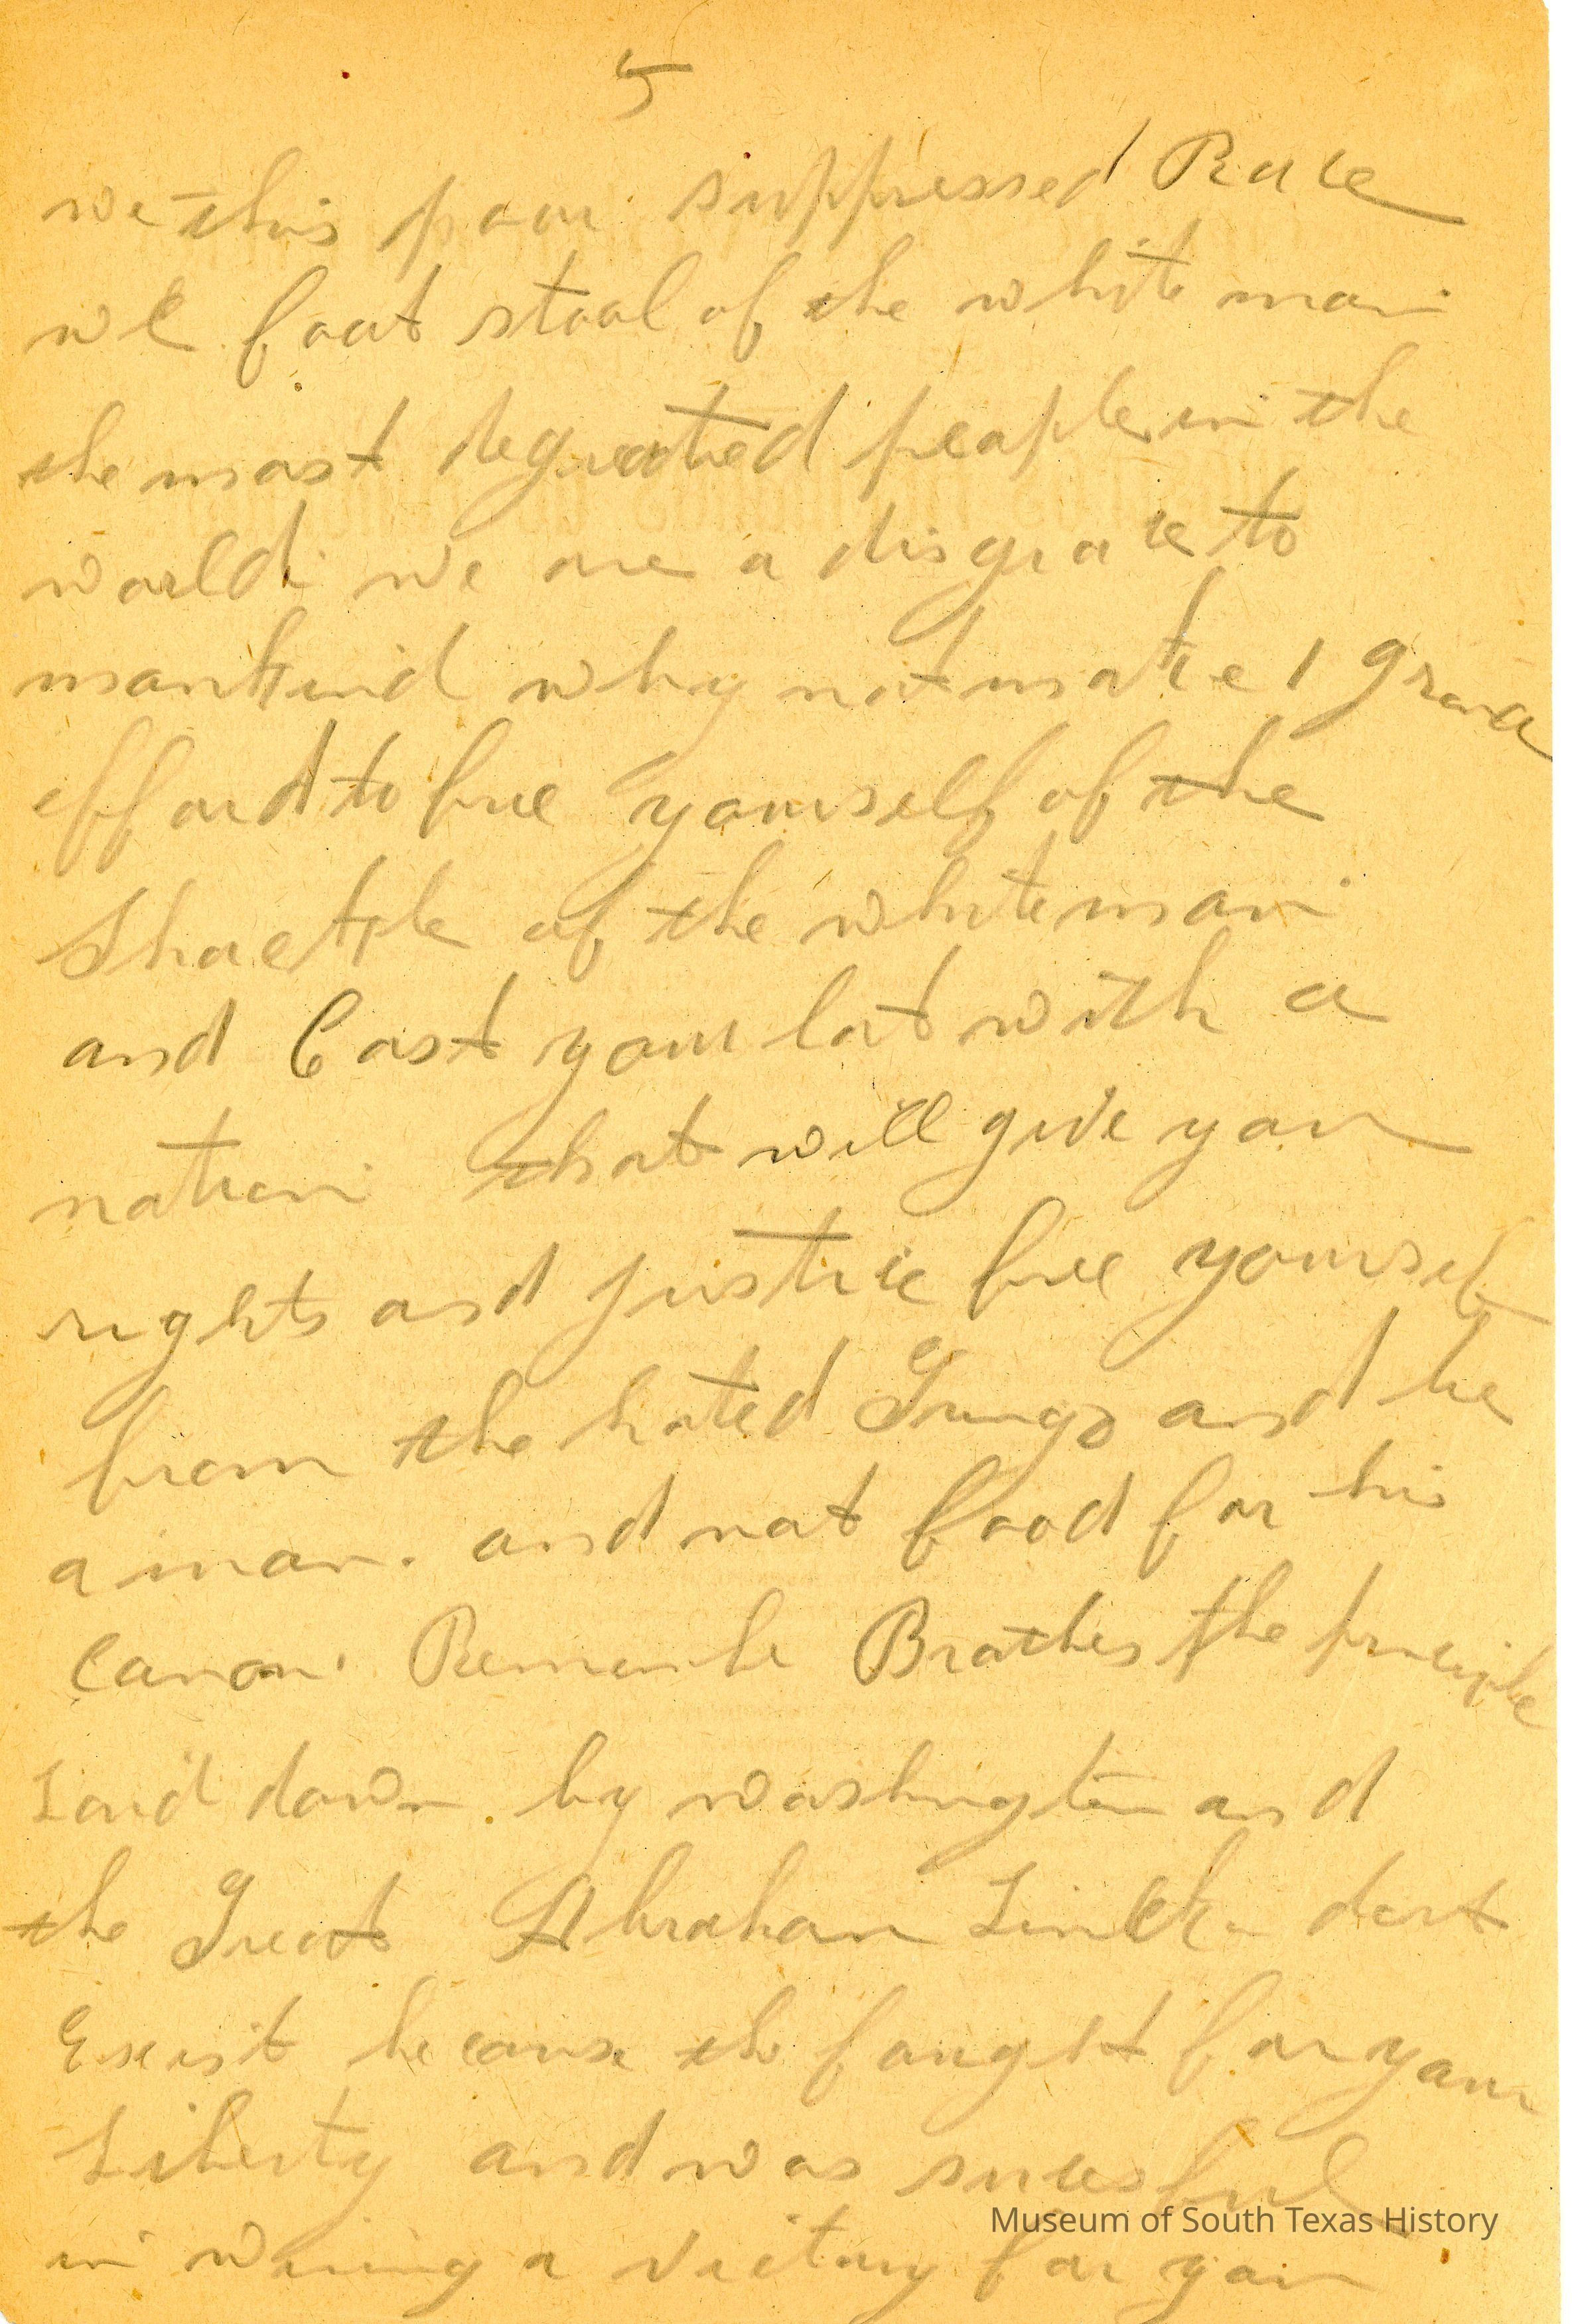 5
we this poor suppressed Race
we foot stool of the white man
the most degrated people in the
world. we are a disgrace to
mankind why not make 1 grand
efford to free yourself of the
Shackle of the white man
and Cast your lot with a
nation that will give you
rights and justice free yourself
from the hated Gringo and be
a man. and not food for his
Canon. Remembe Brothes the principle
Laid down by washington and
the Great Abraham Lincoln dont
Exsist because the fought for your
Liberty and was sucesful
Museum of South Texas History
in wining a victory for you